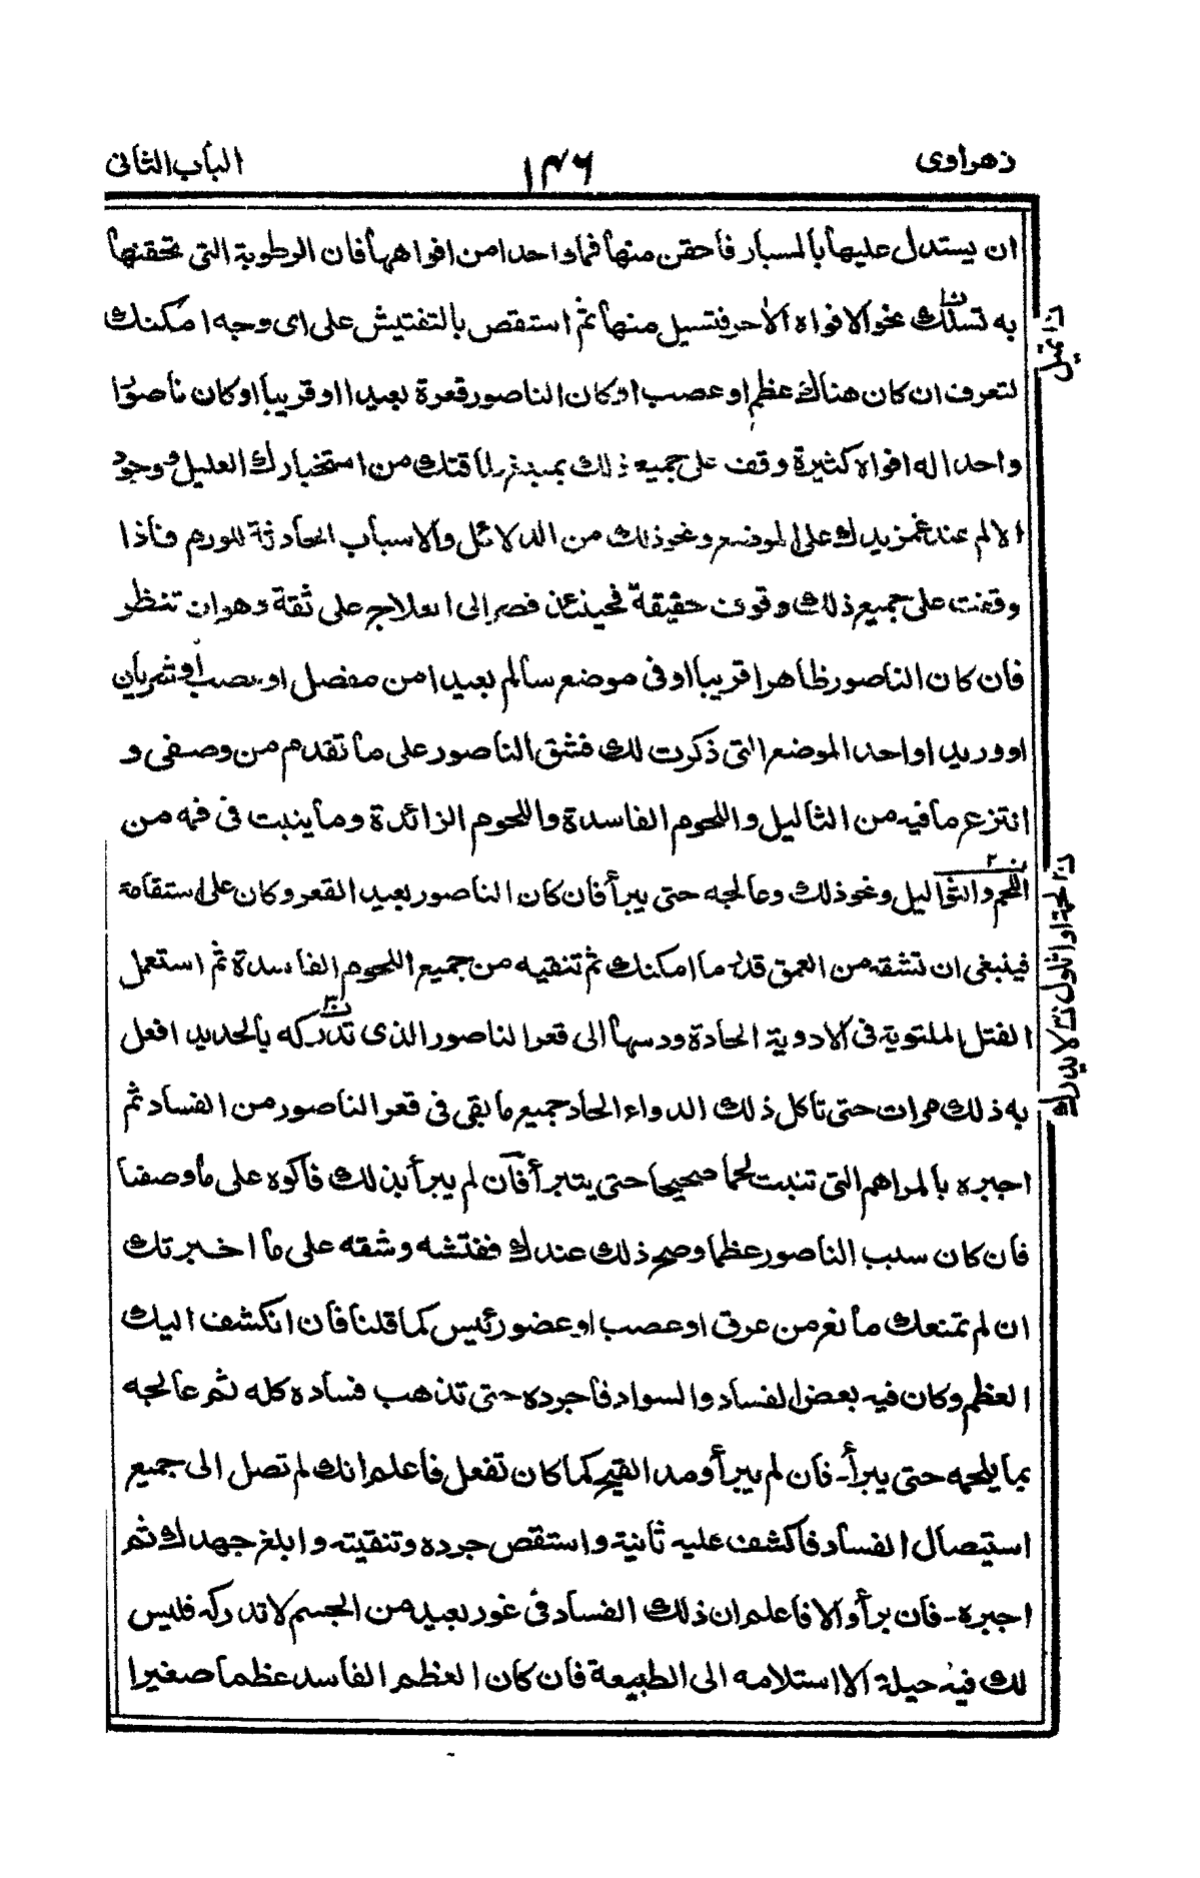 زهراوى
١٤٦
الباب الثانى
ان يستدل عليها بالمسبار فاحقن منها فما واحدا من افواهها فان الرطوبة التى تحقنها
به تسلك نحو الافواه الاخر فتسيل منها ثم استقص بالتفتيش على اى وجه امكنك
لتعرف ان كان هناك عظم او عصب او كان الناصور قعرة بعيدا او قريبا او كان ناصورا
واحدا له افواه كثيرة وقف على جميع ذلك بمبلغ طاقتك من استخبارك العليل ووجود
الالم عند غمز يدك على الموضع ونحو ذلك من الدلائل والاسباب الحادثة للورم فاذا
وقفت على جميع ذلك وقوف حقيقة فحينئذ فصر الى العلاج على ثقة وهو ان تنظر
فان كان الناصور ظاهرا قريبا او فى موضع سالم بعيدا من مفصل او عصب او شريان
او وريد او احد الموضع التى ذكرت لك فشق الناصور على ما تقدم من وصفى و
انتزع ما فيه من الثاليل واللحوم الفاسدة واللحوم الزائدة وما ينبت فى فمه من
اللحم والثواليل ونحو ذلك وعالجه حتى يبرأ فان كان الناصور بعيد القعر وكان على استقامة
فينبغى ان تشقه من العمق قدر ما امكنك ثم تنقيه من جميع اللحوم الفاسدة ثم استعمل
الفتل الملتوية فى الادوية الحادة ودسها الى قعر الناصور الذى تدركه بالحديد افعل
به ذلك مرات حتى تاكل ذلك الدواء الحاد جميع ما بقى فى قعر الناصور من الفساد ثم
اجبره بالمراهم التى تنبت لحما صحيحا حتى يتبرأ فان لم يبرأ بذلك فاكوه على ما وصفنا
فان كان سبب الناصور عظما وصح ذلك عندك ففتشه وشقه على ما اخبرتك
ان لم تمنعك مانع من عرق او عصب او عضو رئيس كما قلنا فان انكشف اليك
العظم وكان فيه بعض الفساد والسواد فاجرده حتى تذهب فساده كله ثم عالجه
بما يلحمه حتى يبرأ - فان لم يبرأ ومد القيح كما كان تفعل فاعلم انك لم تصل الى جميع
استيصال الفساد فاكشف عليه ثانية واستقص جرده وتنقيته وابلغ جهدك ثم
اجبره - فان برأ والا فاعلم ان ذلك الفساد فى غور بعيد من الجسم لا تدركه فليس
لك فيه حيلة الا استلامه الى الطبيعة فان كان العظم الفاسد عظما صغيرا